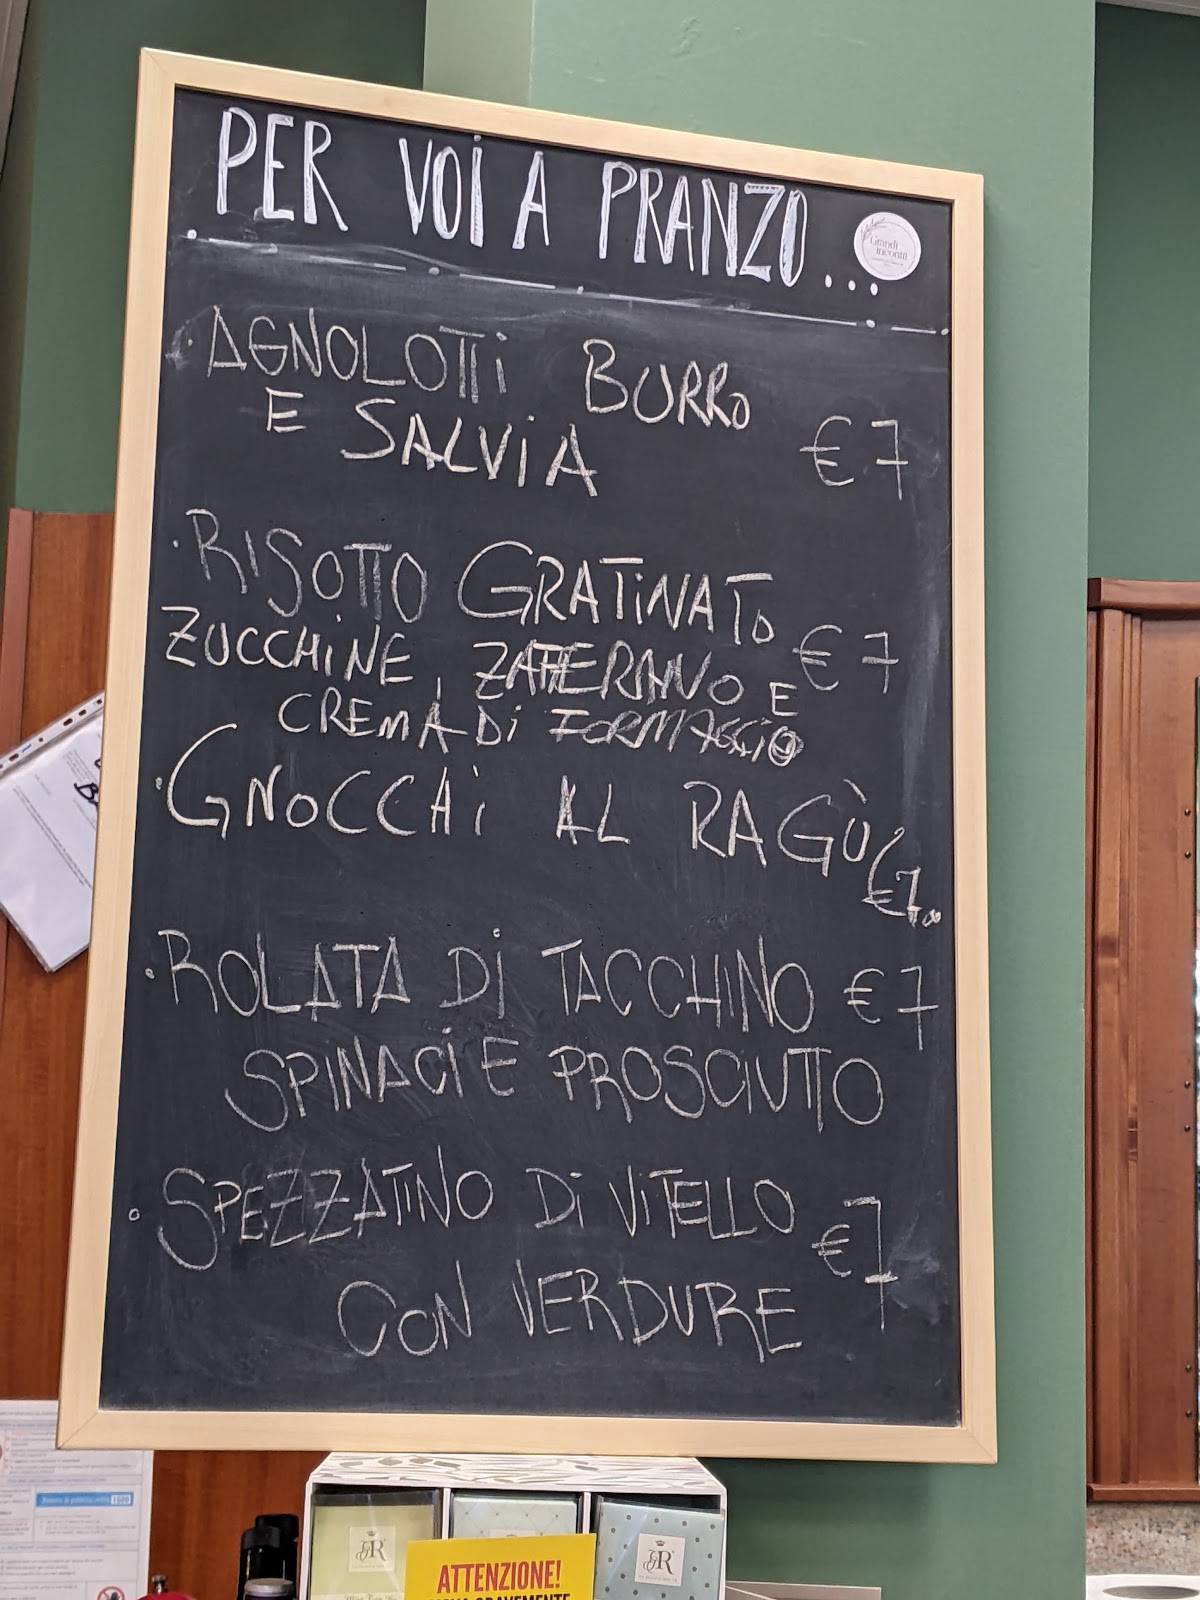 PER VOI A PRANZO...
Grandi
incontri
· AGNOLOTTI BURRO
E SALVIA €7
· RISOTTO GRATINATO
ZUCCHINE, ZAFFERANO E €7
CREMA DI FORMAGGIO
· GNOCCHI AL RAGÙ €7.00
· ROLATA DI TACCHINO €7
SPINACI E PROSCIUTTO
· SPEZZATINO DI VITELLO €7
CON VERDURE
ATTENZIONE!